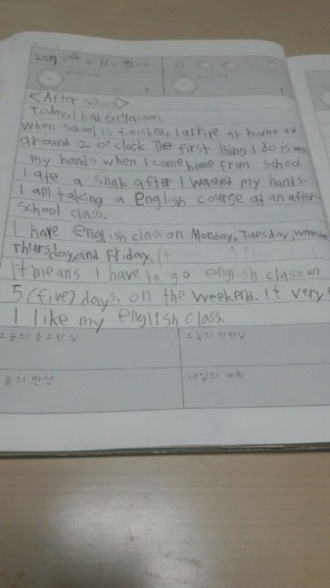 2017 4 11
<After school>
Today, I had 6 classes.
When school is finished, I arrive at home at
around 2 o'clock. The first thing I do is
my hands when I come home from school
I ate a snak after I washed my hands.
I am taking a english course at an after
school class.
I have english class on Monday, Tuesday,
Thursday and Friday. It
It means I have to go english class on
5 (five) days, on the weekend. It very
I like my english class.
오늘의 중요한 일 오늘의 착한일
늘의 반성 내일의 계획